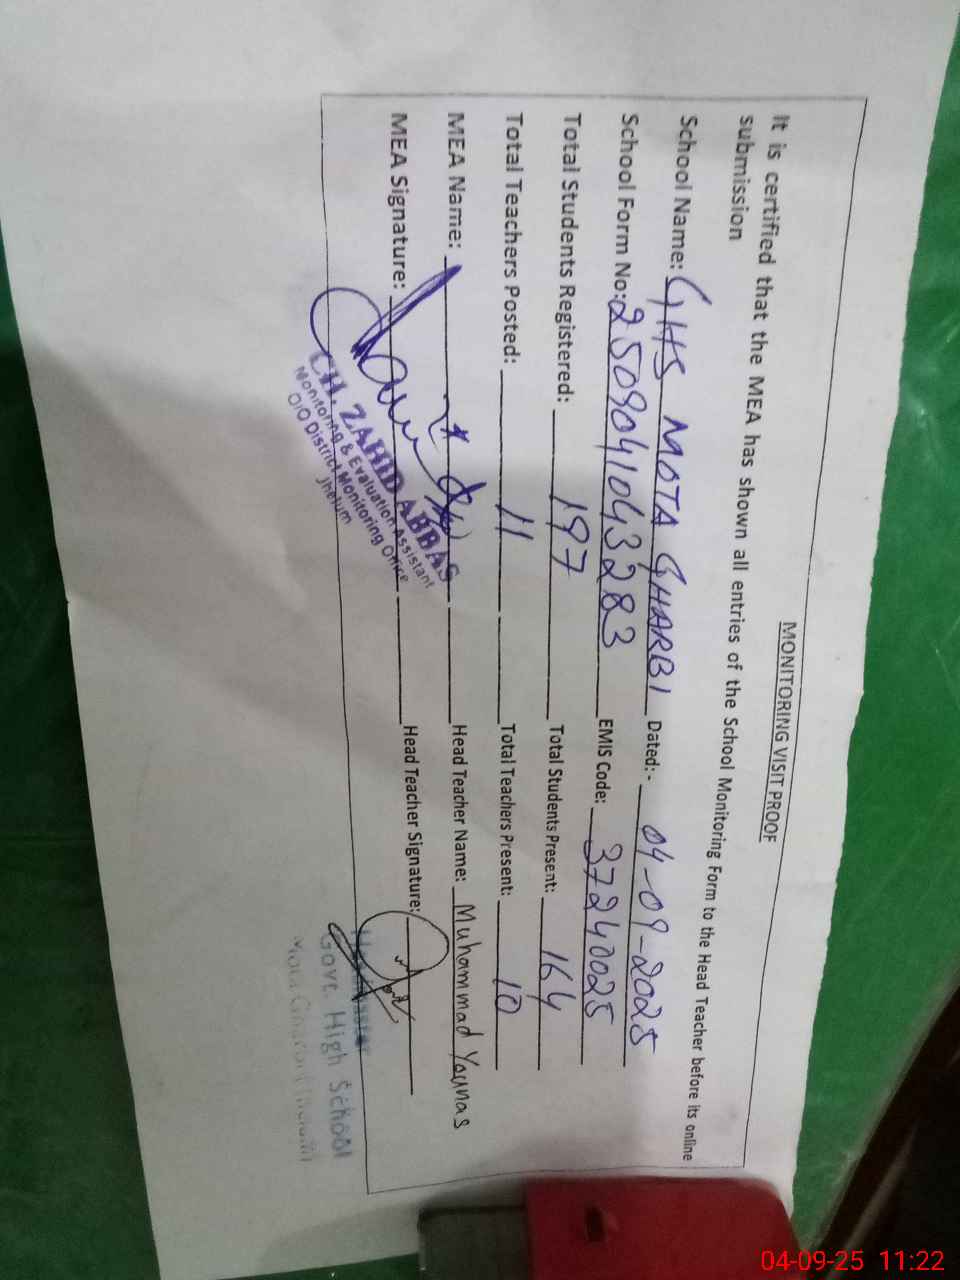 MONITORING VISIT PROOF
It is certified that the MEA has shown all entries of the School Monitoring Form to the Head Teacher before its online
submission
School Name: GHS MOTA GHARBI Dated:- 04-09-2025
School Form No: 2509041043283 EMIS Code: 37240025
Total Students Registered: 197 Total Students Present: 164
Total Teachers Posted: 11 Total Teachers Present: 10
MEA Name: Head Teacher Name: Muhammad Younas
MEA Signature: Head Teacher Signature:
CH. ZAHID ABBAS
Monitoring & Evaluation Assistant
O/O District Monitoring Office
Jhelum
Govt. High School
04-09-25 11:22